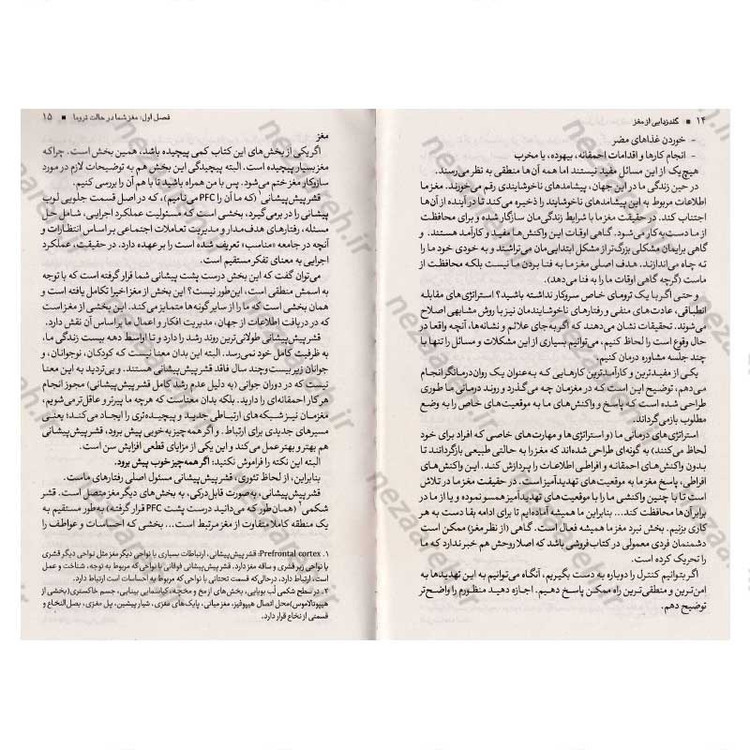 ۱۴ ■ گندزدایی از مغز
– خوردن غذاهای مضر
– انجام کارها و اقدامات احمقانه، بیهوده، یا مخرب
هیچ‌یک از این مسائل مفید نیستند اما همه آن‌ها منطقی به نظر می‌رسند.
در حین زندگی ما در این جهان، پیشامدهای ناخوشایندی رقم می‌خورند. مغز ما
اطلاعات مربوط به این پیشامدهای ناخوشایند را ذخیره می‌کند تا در آینده از آن‌ها
اجتناب کند. در حقیقت مغز ما با شرایط زندگی‌مان سازگار شده و برای محافظت
از ما دست‌به‌کار می‌شود. گاهی اوقات این واکنش‌ها مفید و کارآمد هستند. و
گاهی برایمان مشکلی بزرگ‌تر از مشکل ابتدایی‌مان می‌تراشند و به خودی خود ما را
به چاه می‌اندازند. هدف اصلی مغز ما به فنا بردن ما نیست بلکه محافظت از
ماست (گرچه گاهی اوقات ما را به فنا می‌دهد).
و حتی اگر با یک ترومای خاص سروکار نداشته باشید؟ استراتژی‌های مقابله
انطباقی، عادت‌های منفی و رفتارهای ناخوشایندمان نیز با روش مشابهی اصلاح
می‌شوند. تحقیقات نشان می‌دهند که اگر به‌جای علائم و نشانه‌ها، آنچه واقعا در
حال وقوع است را لحاظ کنیم، می‌توانیم بسیاری از این مشکلات و مسائل را تنها با
چند جلسه مشاوره درمان کنیم.
یکی از مفیدترین و کارآمدترین کارهایی که به‌عنوان یک روان‌درمانگر انجام
می‌دهم، توضیح این است که در مغزمان چه می‌گذرد و روند درمانی ما طوری
طراحی شده است که پاسخ و واکنش‌های ما به موقعیت‌های خاص را به وضع
مطلوب بازمی‌گرداند.
استراتژی‌های درمانی ما (و استراتژی‌ها و مهارت‌های خاصی که افراد برای خود
لحاظ می‌کنند) به گونه‌ای طراحی شده‌اند که مغز را به حالتی طبیعی بازگردانند تا
بدون واکنش‌های احمقانه و افراطی اطلاعات را پردازش کند. این واکنش‌های
افراطی، پاسخ مغز به موقعیت‌های تهدیدآمیز است. در حقیقت مغز ما در تلاش
است تا با چنین واکنشی ما را با موقعیت‌های تهدیدآمیز همسو نموده و یا از ما در
برابر آن‌ها محافظت کند... بنابراین ما همیشه آماده‌ایم تا برای ادامه بقا دست به هر
کاری بزنیم. بخش نبرد مغز ما همیشه فعال است. گاهی (از نظر مغز) ممکن است
دشمنمان فردی معمولی در کتاب‌فروشی باشد که اصلا روحش هم خبر ندارد که ما
را تحریک کرده است.
اگر بتوانیم کنترل را دوباره به دست بگیریم، آنگاه می‌توانیم به این تهدیدها به
امن‌ترین و منطقی‌ترین راه ممکن پاسخ دهیم. اجازه دهید منظورم را واضح‌تر
توضیح دهم.
فصل اول: مغز شما در حالت تروما ■ ۱۵
مغز
اگر یکی از بخش‌های این کتاب کمی پیچیده باشد، همین بخش است. چراکه
مغز بسیار پیچیده است. البته پیچیدگی این بخش هم به توضیحات لازم در مورد
سازوکار مغز ختم می‌شود. پس با من همراه باشید تا با هم آن را بررسی کنیم.
قشر پیش‌پیشانی۱ (که ما آن را PFC می‌نامیم)، که در اصل قسمت جلویی لوب
پیشانی را در برمی‌گیرد، بخشی است که مسئولیت عملکرد اجرایی، شامل حل
مسئله، رفتارهای هدف‌مدار و مدیریت تعاملات اجتماعی بر اساس انتظارات و
آنچه در جامعه «مناسب» تعریف شده است را بر عهده دارد. در حقیقت، عملکرد
اجرایی به معنای تفکر مستقیم است.
می‌توان گفت که این بخش درست پشت پیشانی شما قرار گرفته است که با توجه
به اسمش منطقی است، این‌طور نیست؟ این بخش از مغز اخیرا تکامل یافته است و
همان بخشی است که ما را از سایر گونه‌ها متمایز می‌کند. این بخشی از مغز است
که در دریافت اطلاعات از جهان، مدیریت افکار و اعمال ما براساس آن نقش دارد.
قشر پیش‌پیشانی طولانی‌ترین روند رشد را دارد و تا اواسط دهه بیست زندگی ما،
به ظرفیت کامل خود نمی‌رسد. البته این بدان معنا نیست که کودکان، نوجوانان، و
جوانان زیر بیست و چند سال فاقد قشر پیش‌پیشانی هستند. و بی‌تردید به این معنا
نیست که در دوران جوانی (به دلیل عدم رشد کامل قشر پیش‌پیشانی) مجوز انجام
هر کار احمقانه‌ای را دارید. بلکه بدان معناست که هرچه ما پیرتر و عاقل‌تر می‌شویم،
مغزمان نیز شبکه‌های ارتباطی جدید و پیچیده‌تری را ایجاد می‌کند؛ یعنی
مسیرهای جدیدی برای ارتباط. و اگر همه‌چیز به‌خوبی پیش برود، قشر پیش‌پیشانی
هم بهتر و بهتر عمل می‌کند و این یکی از مزایای قطعی افزایش سن است.
البته این نکته را فراموش نکنید: اگر همه‌چیز خوب پیش برود.
بنابراین، از لحاظ تئوری، قشر پیش‌پیشانی مسئول اصلی رفتارهای ماست.
قشر پیش‌پیشانی، به‌صورت قابل‌درکی، به بخش‌های دیگر مغز متصل است. قشر
شکمی۲ (همان طور که می‌دانید درست پشت PFC قرار گرفته) به‌طور مستقیم به
یک منطقه کاملا متفاوت از مغز مرتبط است... بخشی که احساسات و عواطف را
۱. Prefrontal cortex: قشر پیش‌پیشانی، ارتباطات بسیاری با نواحی دیگر مغز مثل نواحی دیگر قشری
یا نواحی زیر قشری و ساقه مغز دارد. قشر پیش‌پیشانی فوقانی با نواحی که مربوط به توجه، شناخت و عمل
است، ارتباط دارد، درحالی‌که قسمت تحتانی با نواحی که مربوط به احساسات است ارتباط دارد.
۲. در سطح شکمی لُب بویایی، بخش‌های از مخ و مخچه، کیاسمایی بینایی، جسم خاکستری (بخشی از
هیپوتالاموس) محل اتصال هیپوفیز، مغز میانی، پایک‌های مغزی، شیار پیشین، پل مغزی، بصل‌النخاع و
قسمتی از نخاع قرار دارد.